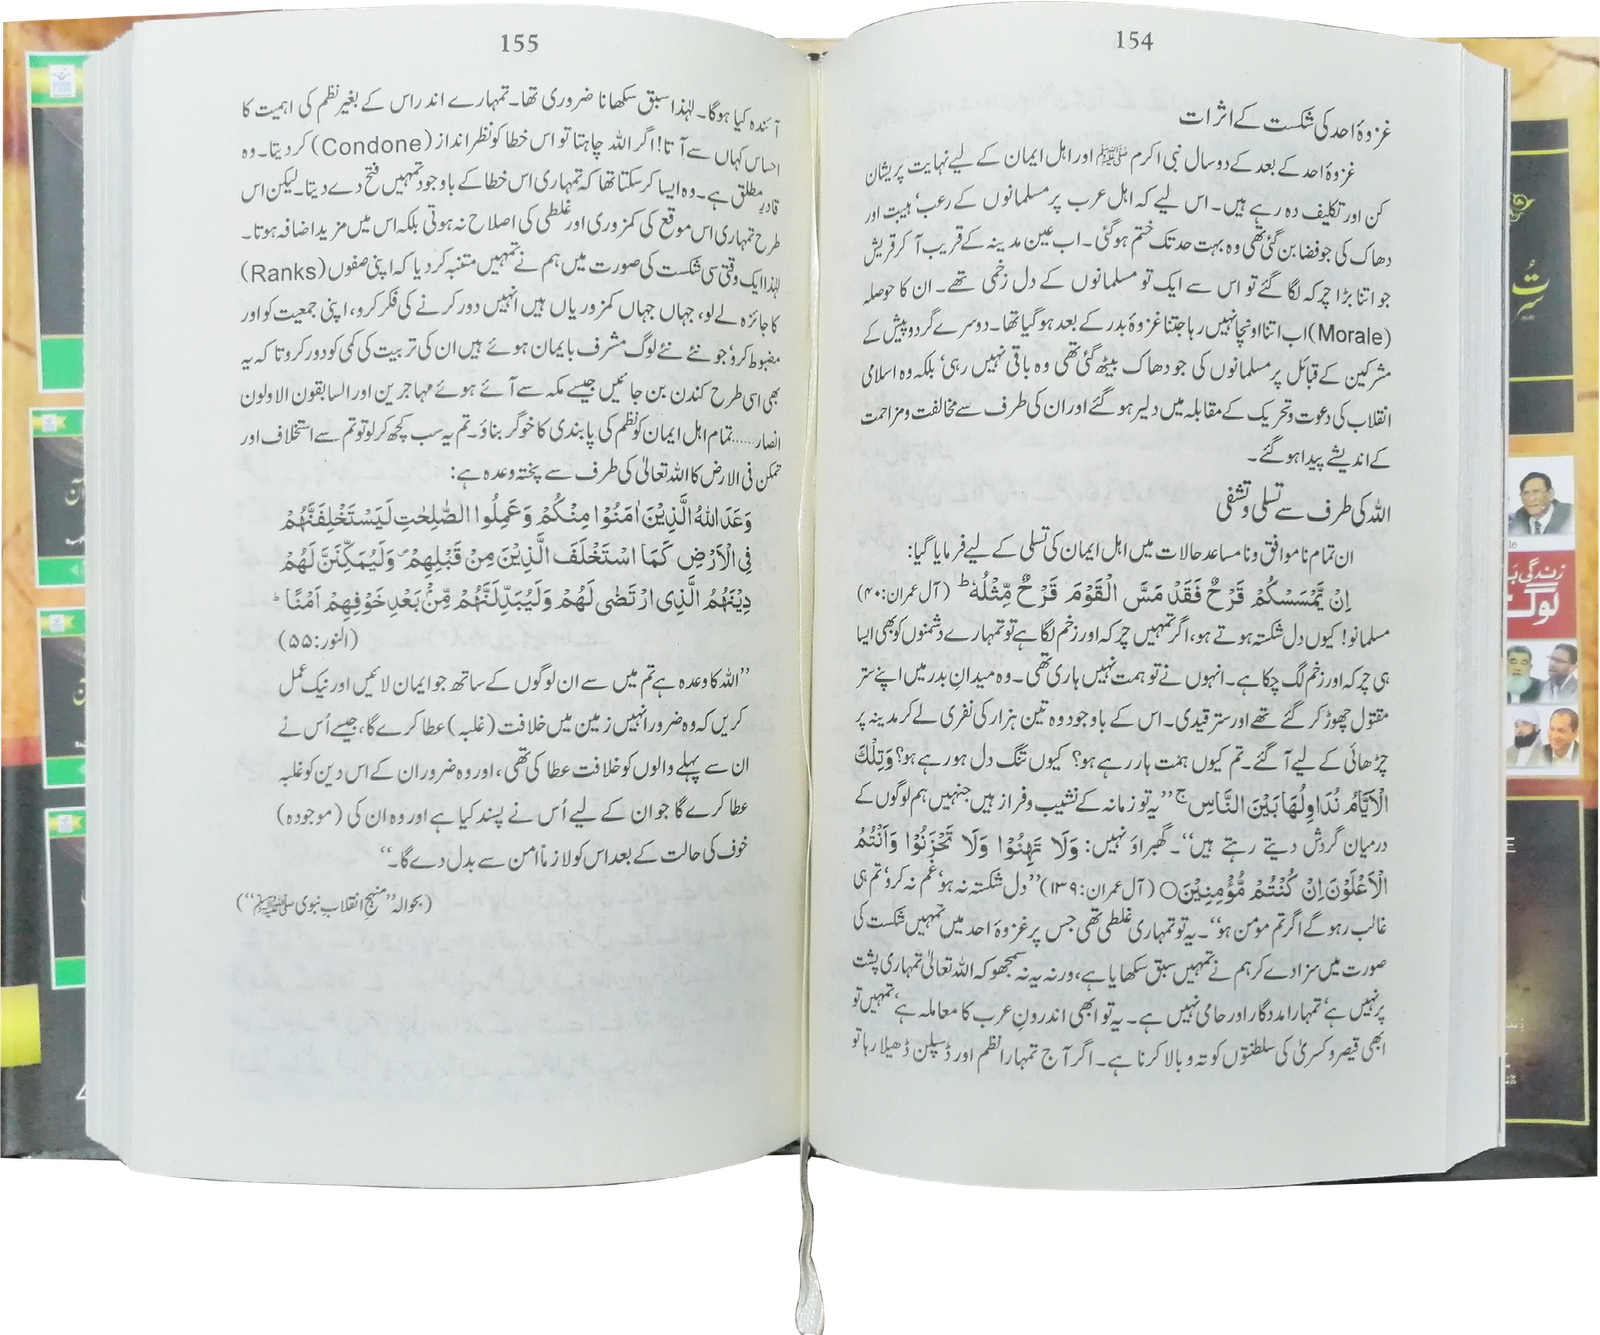 154
غزوۂ احد کی شکست کے اثرات
غزوۂ احد کے بعد کے دو سال نبی اکرم ﷺ اور اہل ایمان کے لیے نہایت پریشان
کن اور تکلیف دہ رہے ہیں۔ اس لیے کہ اہل عرب پر مسلمانوں کے رعب‘ ہیبت اور
دھاک کی جو فضا بن گئی تھی وہ بہت حد تک ختم ہو گئی۔ اب عین مدینہ کے قریب آ کر قریش
جو اتنا بڑا چرکہ لگا گئے تو اس سے ایک تو مسلمانوں کے دل زخمی تھے۔ ان کا حوصلہ
(Morale) اب اتنا اونچا نہیں رہا جتنا غزوۂ بدر کے بعد ہو گیا تھا۔ دوسرے گرد و پیش کے
مشرکین کے قبائل پر مسلمانوں کی جو دھاک بیٹھ گئی تھی وہ باقی نہیں رہی‘ بلکہ وہ اسلامی
انقلاب کی دعوت و تحریک کے مقابلہ میں دلیر ہو گئے اور ان کی طرف سے مخالفت و مزاحمت
کے اندیشے پیدا ہو گئے۔
اللہ کی طرف سے تسلی و تشفی
ان تمام ناموافق و نامساعد حالات میں اہل ایمان کی تسلی کے لیے فرمایا گیا:
اِنْ یَّمْسَسْکُمْ قَرْحٌ فَقَدْ مَسَّ الْقَوْمَ قَرْحٌ مِّثْلُهٗ ؕ (آل عمران:۴۰)
مسلمانو! کیوں دل شکستہ ہوتے ہو، اگر تمہیں چرکہ اور زخم لگا ہے تو تمہارے دشمنوں کو بھی ایسا
ہی چرکہ اور زخم لگ چکا ہے۔ انہوں نے تو ہمت نہیں ہاری تھی۔ وہ میدانِ بدر میں اپنے ستر
مقتول چھوڑ کر گئے تھے اور ستر قیدی۔ اس کے باوجود وہ تین ہزار کی نفری لے کر مدینہ پر
چڑھائی کے لیے آ گئے۔ تم کیوں ہمت ہار رہے ہو؟ کیوں تنگ دل ہو رہے ہو؟ وَتِلْكَ
الْاَیَّامُ نُدَاوِلُهَا بَیْنَ النَّاسِ ۚ ’’یہ تو زمانہ کے نشیب و فراز ہیں جنہیں ہم لوگوں کے
درمیان گردش دیتے رہتے ہیں‘‘۔ گھبراؤ نہیں: وَلَا تَهِنُوْا وَلَا تَحْزَنُوْا وَاَنْتُمُ
الْاَعْلَوْنَ اِنْ كُنْتُمْ مُّؤْمِنِیْنَ○ (آل عمران:۱۳۹) ’’دل شکستہ نہ ہو‘ غم نہ کرو‘ تم ہی
غالب رہو گے اگر تم مومن ہو‘‘۔ یہ تو تمہاری غلطی تھی جس پر غزوۂ احد میں تمہیں شکست کی
صورت میں سزا دے کر ہم نے تمہیں سبق سکھایا ہے، ورنہ یہ نہ سمجھو کہ اللہ تعالیٰ تمہاری پشت
پر نہیں ہے‘ تمہارا مددگار اور حامی نہیں ہے۔ یہ تو ابھی اندرونِ عرب کا معاملہ ہے‘ تمہیں تو
ابھی قیصر و کسریٰ کی سلطنتوں کو تہ و بالا کرنا ہے۔ اگر آج تمہارا نظم اور ڈسپلن ڈھیلا رہا تو
155
آئندہ کیا ہوگا۔ لہٰذا سبق سکھانا ضروری تھا۔ تمہارے اندر اس کے بغیر نظم کی اہمیت کا
احساس کہاں سے آتا! اگر اللہ چاہتا تو اس خطا کو نظر انداز (Condone) کر دیتا۔ وہ
قادرِ مطلق ہے۔ وہ ایسا کر سکتا تھا کہ تمہاری اس خطا کے باوجود تمہیں فتح دے دیتا۔ لیکن اس
طرح تمہاری اس موقع کی کمزوری اور غلطی کی اصلاح نہ ہوتی بلکہ اس میں مزید اضافہ ہوتا۔
لہٰذا ایک وقتی سی شکست کی صورت میں ہم نے تمہیں متنبہ کر دیا کہ اپنی صفوں (Ranks)
کا جائزہ لے لو، جہاں جہاں کمزوریاں ہیں انہیں دور کرنے کی فکر کرو، اپنی جمعیت کو اور
مضبوط کرو‘ جو نئے نئے لوگ مشرف بایمان ہوئے ہیں ان کی تربیت کی کمی کو دور کرو تا کہ یہ
بھی اسی طرح کندن بن جائیں جیسے مکہ سے آئے ہوئے مہاجرین اور السابقون الاولون
انصار...... تمام اہل ایمان کو نظم کی پابندی کا خوگر بناؤ۔ تم یہ سب کچھ کر لو تو تم سے استخلاف اور
تمکن فی الارض کا اللہ تعالیٰ کی طرف سے پختہ وعدہ ہے:
وَعَدَ اللّٰهُ الَّذِیْنَ اٰمَنُوْا مِنْكُمْ وَعَمِلُوا الصّٰلِحٰتِ لَیَسْتَخْلِفَنَّهُمْ
فِی الْاَرْضِ كَمَا اسْتَخْلَفَ الَّذِیْنَ مِنْ قَبْلِهِمْ ۪ وَلَیُمَكِّنَنَّ لَهُمْ
دِیْنَهُمُ الَّذِی ارْتَضٰی لَهُمْ وَلَیُبَدِّلَنَّهُمْ مِّنْۢ بَعْدِ خَوْفِهِمْ اَمْنًا ؕ
(النور:۵۵)
’’اللہ کا وعدہ ہے تم میں سے ان لوگوں کے ساتھ جو ایمان لائیں اور نیک عمل
کریں کہ وہ ضرور انہیں زمین میں خلافت (غلبہ) عطا کرے گا، جیسے اُس نے
ان سے پہلے والوں کو خلافت عطا کی تھی، اور وہ ضرور ان کے اس دین کو غلبہ
عطا کرے گا جو ان کے لیے اُس نے پسند کیا ہے اور وہ ان کی (موجودہ)
خوف کی حالت کے بعد اس کو لازماً امن سے بدل دے گا۔‘‘
(بحوالہ ’’منہج انقلابِ نبوی ﷺ‘‘)